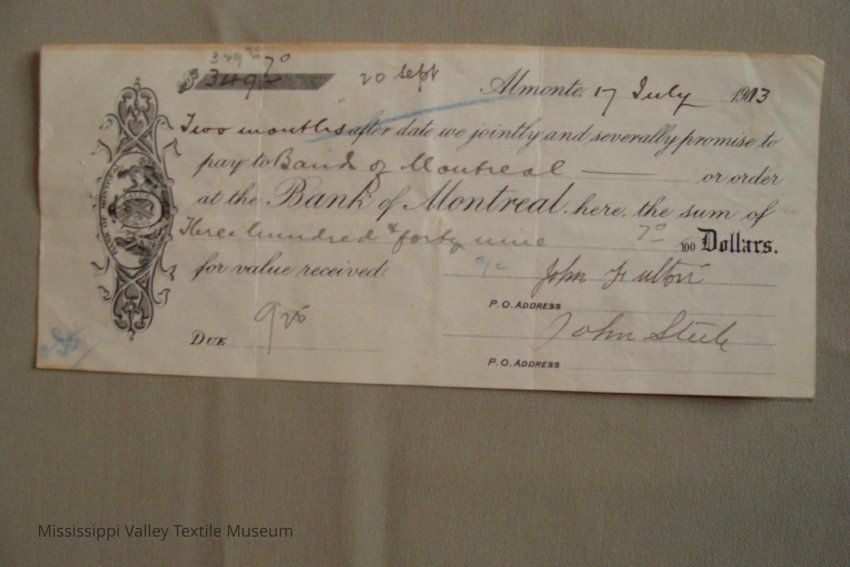 349 70
$ 349 70
20 Sept
Almonte, 17 July 1913
Two months after date we jointly and severally promise to
pay to Bank of Montreal or order
at the Bank of Montreal, here, the sum of
Three hundred & forty nine 70/100 Dollars.
for value received.
John Fulton
P.O. ADDRESS
John Steele
DUE 920
P.O. ADDRESS
BANK OF MONTREAL
Mississippi Valley Textile Museum